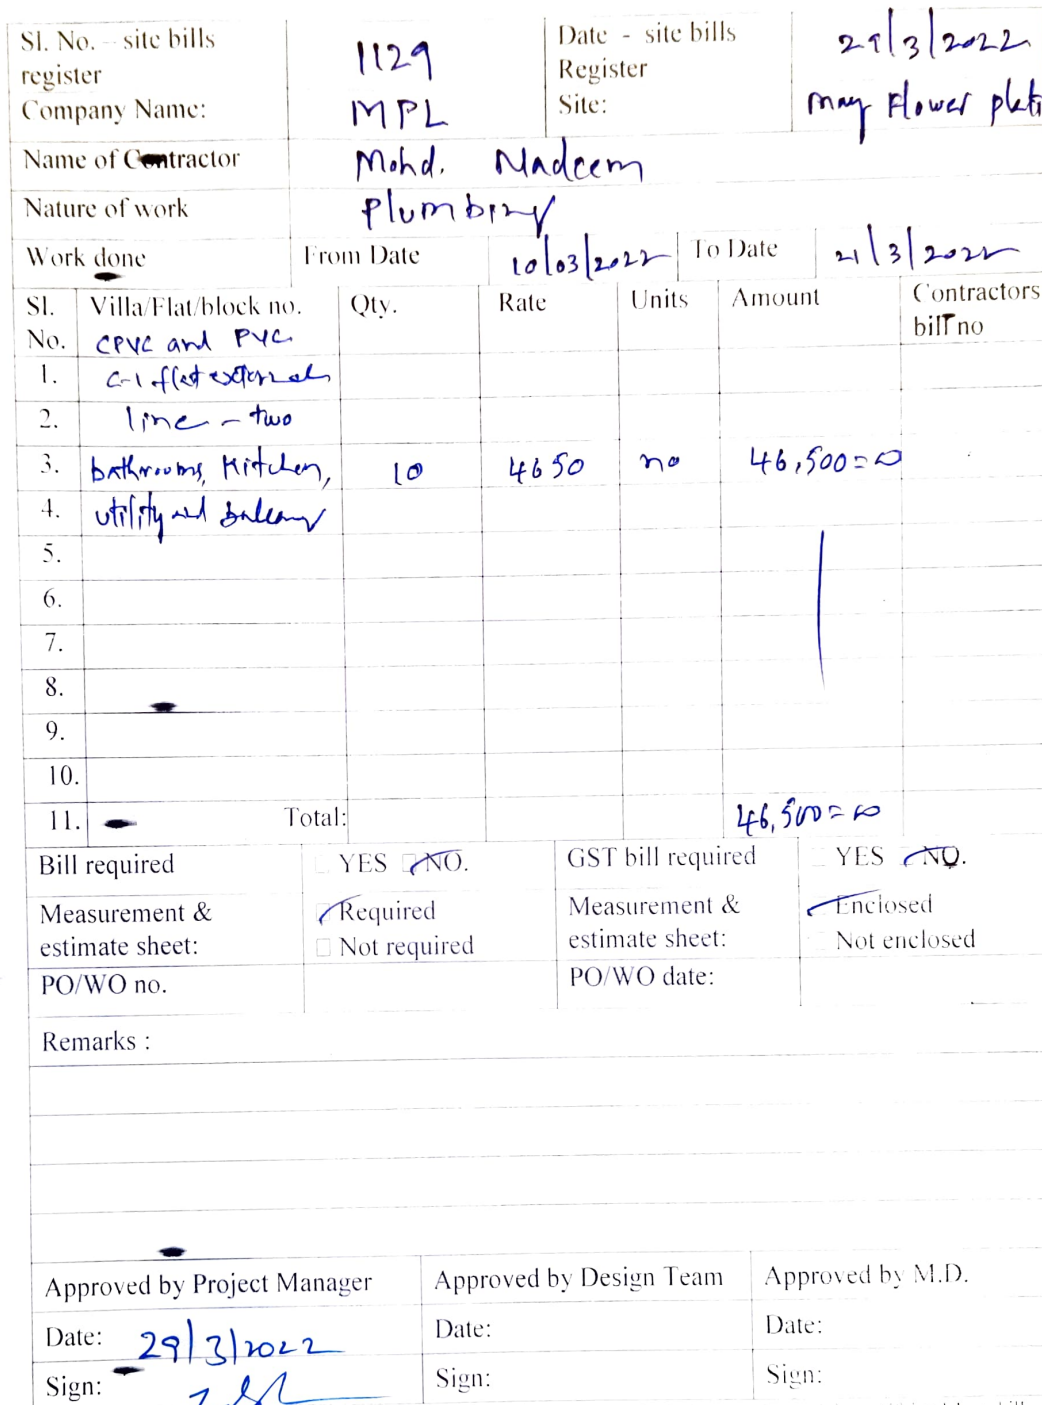 Sl. No. – site bills register 1129 Date - site bills Register 29/3/2022
Company Name: MPL Site: may Flower plati
Name of Contractor Mohd. Nadeem
Nature of work plumbing
Work done From Date 10/03/2022 To Date 21/3/2022
Sl. No. Villa/Flat/block no. Qty. Rate Units Amount Contractors bill no
CPVC and PVC
1. C-1 flat external
2. line - two
3. bathrooms, Kitchen, 10 4650 no 46,500=00
4. utility and balcony
5.
6.
7.
8.
9.
10.
11. Total: 46,500=00
Bill required YES NO. GST bill required YES NO.
Measurement & estimate sheet: Required Measurement & estimate sheet: Enclosed
Not required Not enclosed
PO/WO no. PO/WO date:
Remarks :
Approved by Project Manager Approved by Design Team Approved by M.D.
Date: 29/3/2022 Date: Date:
Sign: Sign: Sign: